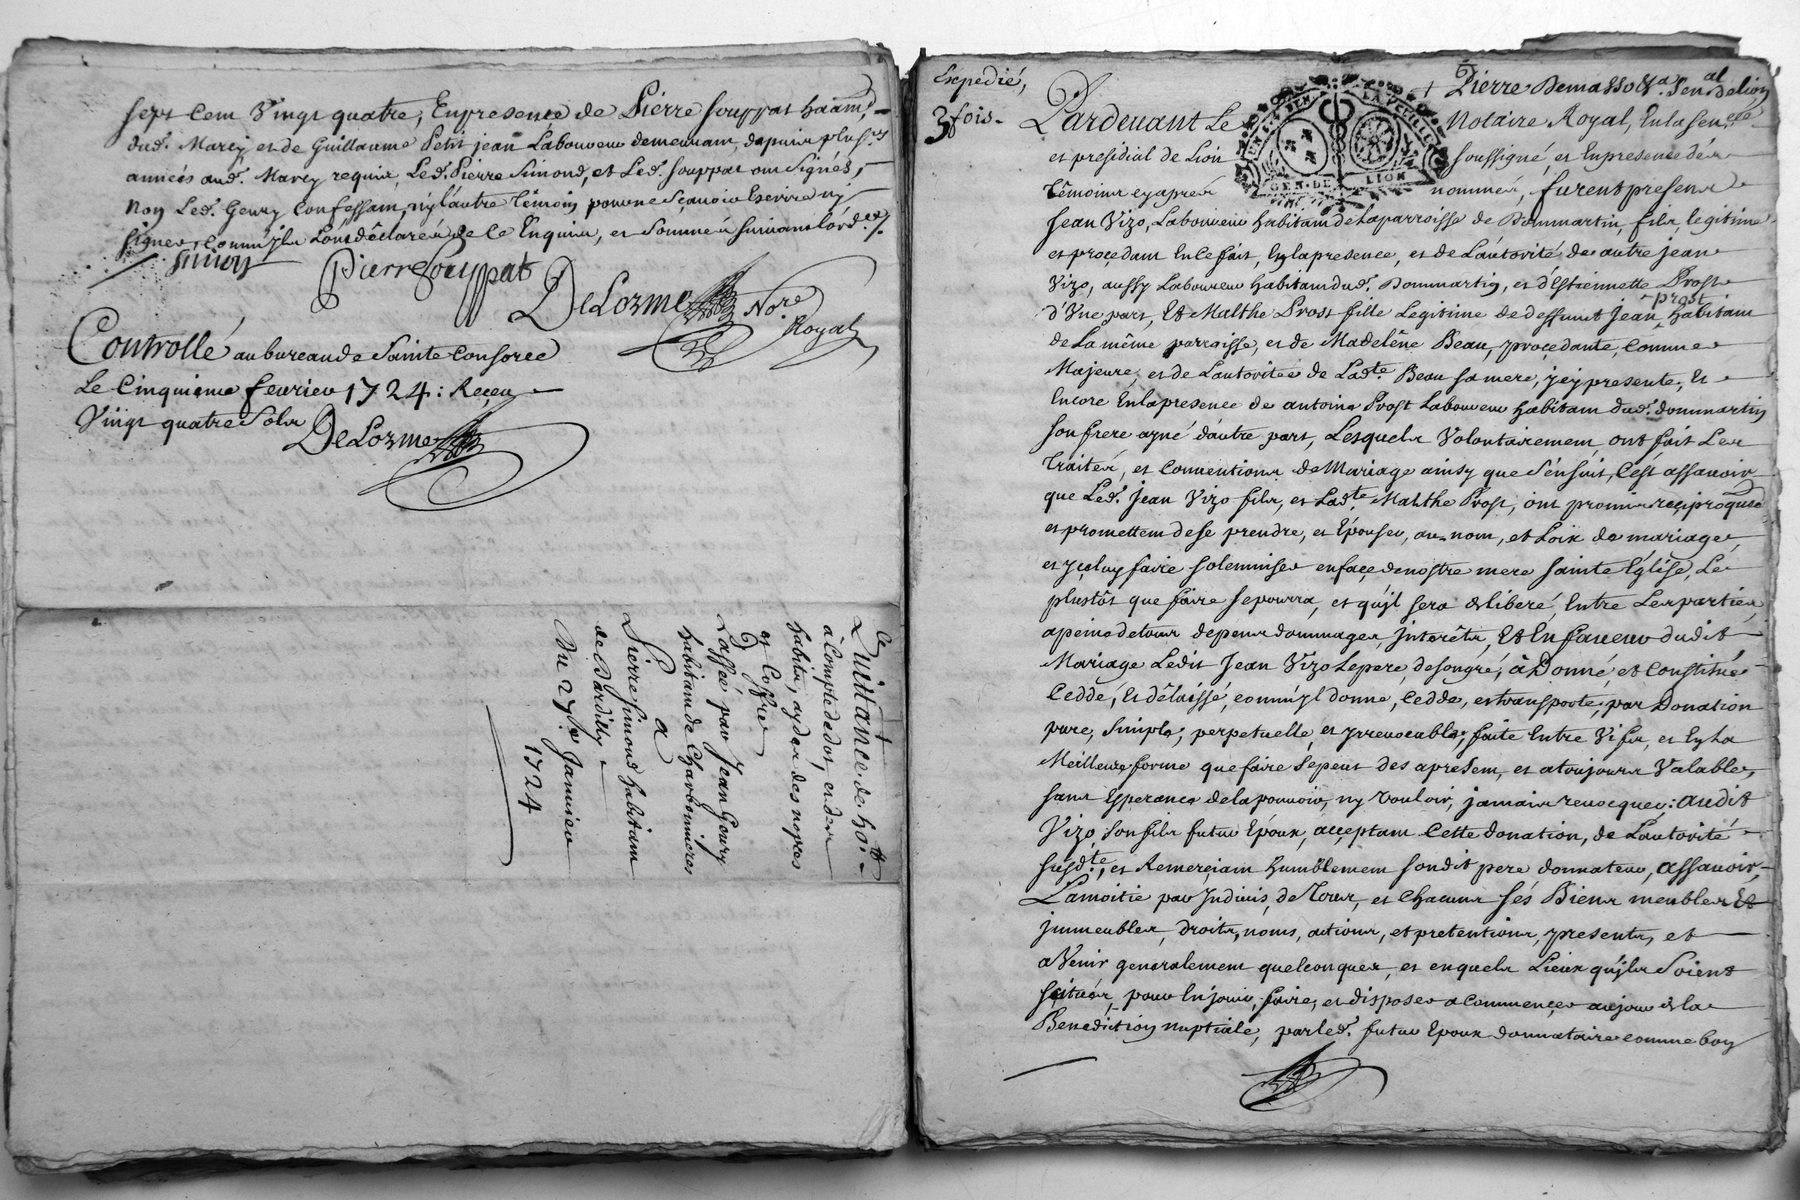 sept cem Vingt quatre, En presence de Pierre Souppat haam.
dud. Marcy et de Guillaume Petit jean Laboureur demeurant depuis plus.rs
années aud. Marcy requis, Led. Pierre Simond, et Led. Souppat ont Signés,
non Led. Geury Confessant, ny Lautre Témoin pour ne Sçavoir Escrire ny
signer, comm'jls L'ont déclaré de ce Enquis, et Sommés suivant L'ord.ce /.
Simon
Pierre Souppat
DeLorme No.re
Royal
Controllé au bureau de Sainte Consorce
Le Cinquieme feurier 1724: Reçeu
Vingt quatre Sols
DeLorme
ce
Quittance de 40.tt
à Compte de dot, et des
habits,
et Coffre
Passée par Jean Geury
habitant de Charbonnieres
A
Pierre Simond habitant
de Dardilly
Du 27.e Januier
1724
Expedié,
3 fois.
GEN. DE LION
Pardeuant Le Notaire Royal, En la Sen.cée
et presidial de Lion soussigné, et En presence des
témoins cy apres nommés, furent presens
Jean Vizo, Laboureur habitant de La parroisse de Dommartin, fils Legitime
et proçedant En Ce fait, En la presence, et de L'autorité de autre jean
Vizo, aussy Laboureur habitant dud. Dommartin, et d'Estiennette Prost
d'Vne part, Et Malthe Prost fille Legitime de deffunt Jean prost habitant
de La même parroisse, et de Madelêne Beau, proçedante, Comme
Majeure, et de L'autorité de Lad.te Beau sa mere, jcy presente, Et
Encore En la presence de antoine Prost Laboureur habitant dud. dommartin
son frere ayné d'autre part, Lesquels Volontairement ont fait Les
traités, et Conuentions de Mariage ainsy que S'ensuit, C'est assauoir
que Led. Jean Vizo fils, et Lad.te Malthe Prost, ont promis reçiproquem.
et promettent de se prendre, et Epouser, au nom, et Loix de mariage,
et jçeluy faire solemniser en façe de nostre mere Sainte Eglise, Le
plustôt que faire se pourra, et qu'jl sera deliberé, Entre Les parties,
a peine de tous depens dommages, jnterêts, Et En faueur dudit
Mariage Ledit Jean Vizo Le pere, de son gré, à Donné, et Constitué
Cedde, et délaissé, comm'jl donne, Cedde, et transporte, par Donation
pure, Simple, perpetuelle, et jrreuocable, faite Entre Vifs, et En La
Meilleure forme que faire Se peut des apresent, et a toujours Valable,
sans Esperance de la pouuoir, ny Vouloir, jamais reuocquer: audit
Vizo, Son fils futur Epoux, acceptant Cette donation, de L'autorité
susd.te, et Remerçiant humblement sondit pere donnateur, Assauoir,
La moitié par Indiuis, de Tous, et Chacuns ses Biens meubles Et
jmmeubles, droits, noms, actions, et pretentions, presents, et
a Venir generalement quelconques, et en quels Lieux qu'jls Soient
scitués, pour En jouir, faire, et disposer a Commençer au jour de la
Benediction nuptiale, par led. futur Epoux donnataire comme bon